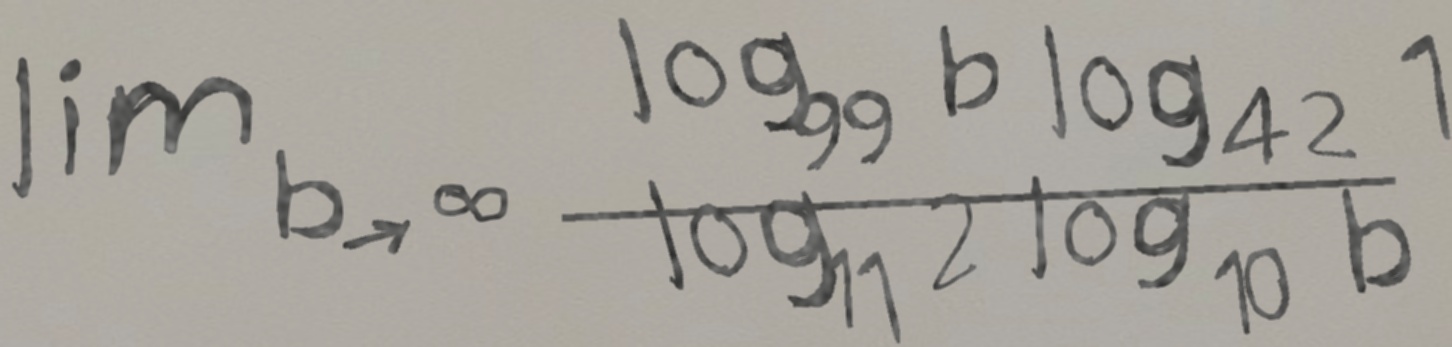 lim b→∞ log99 b log42 1
log11 2 log10 b